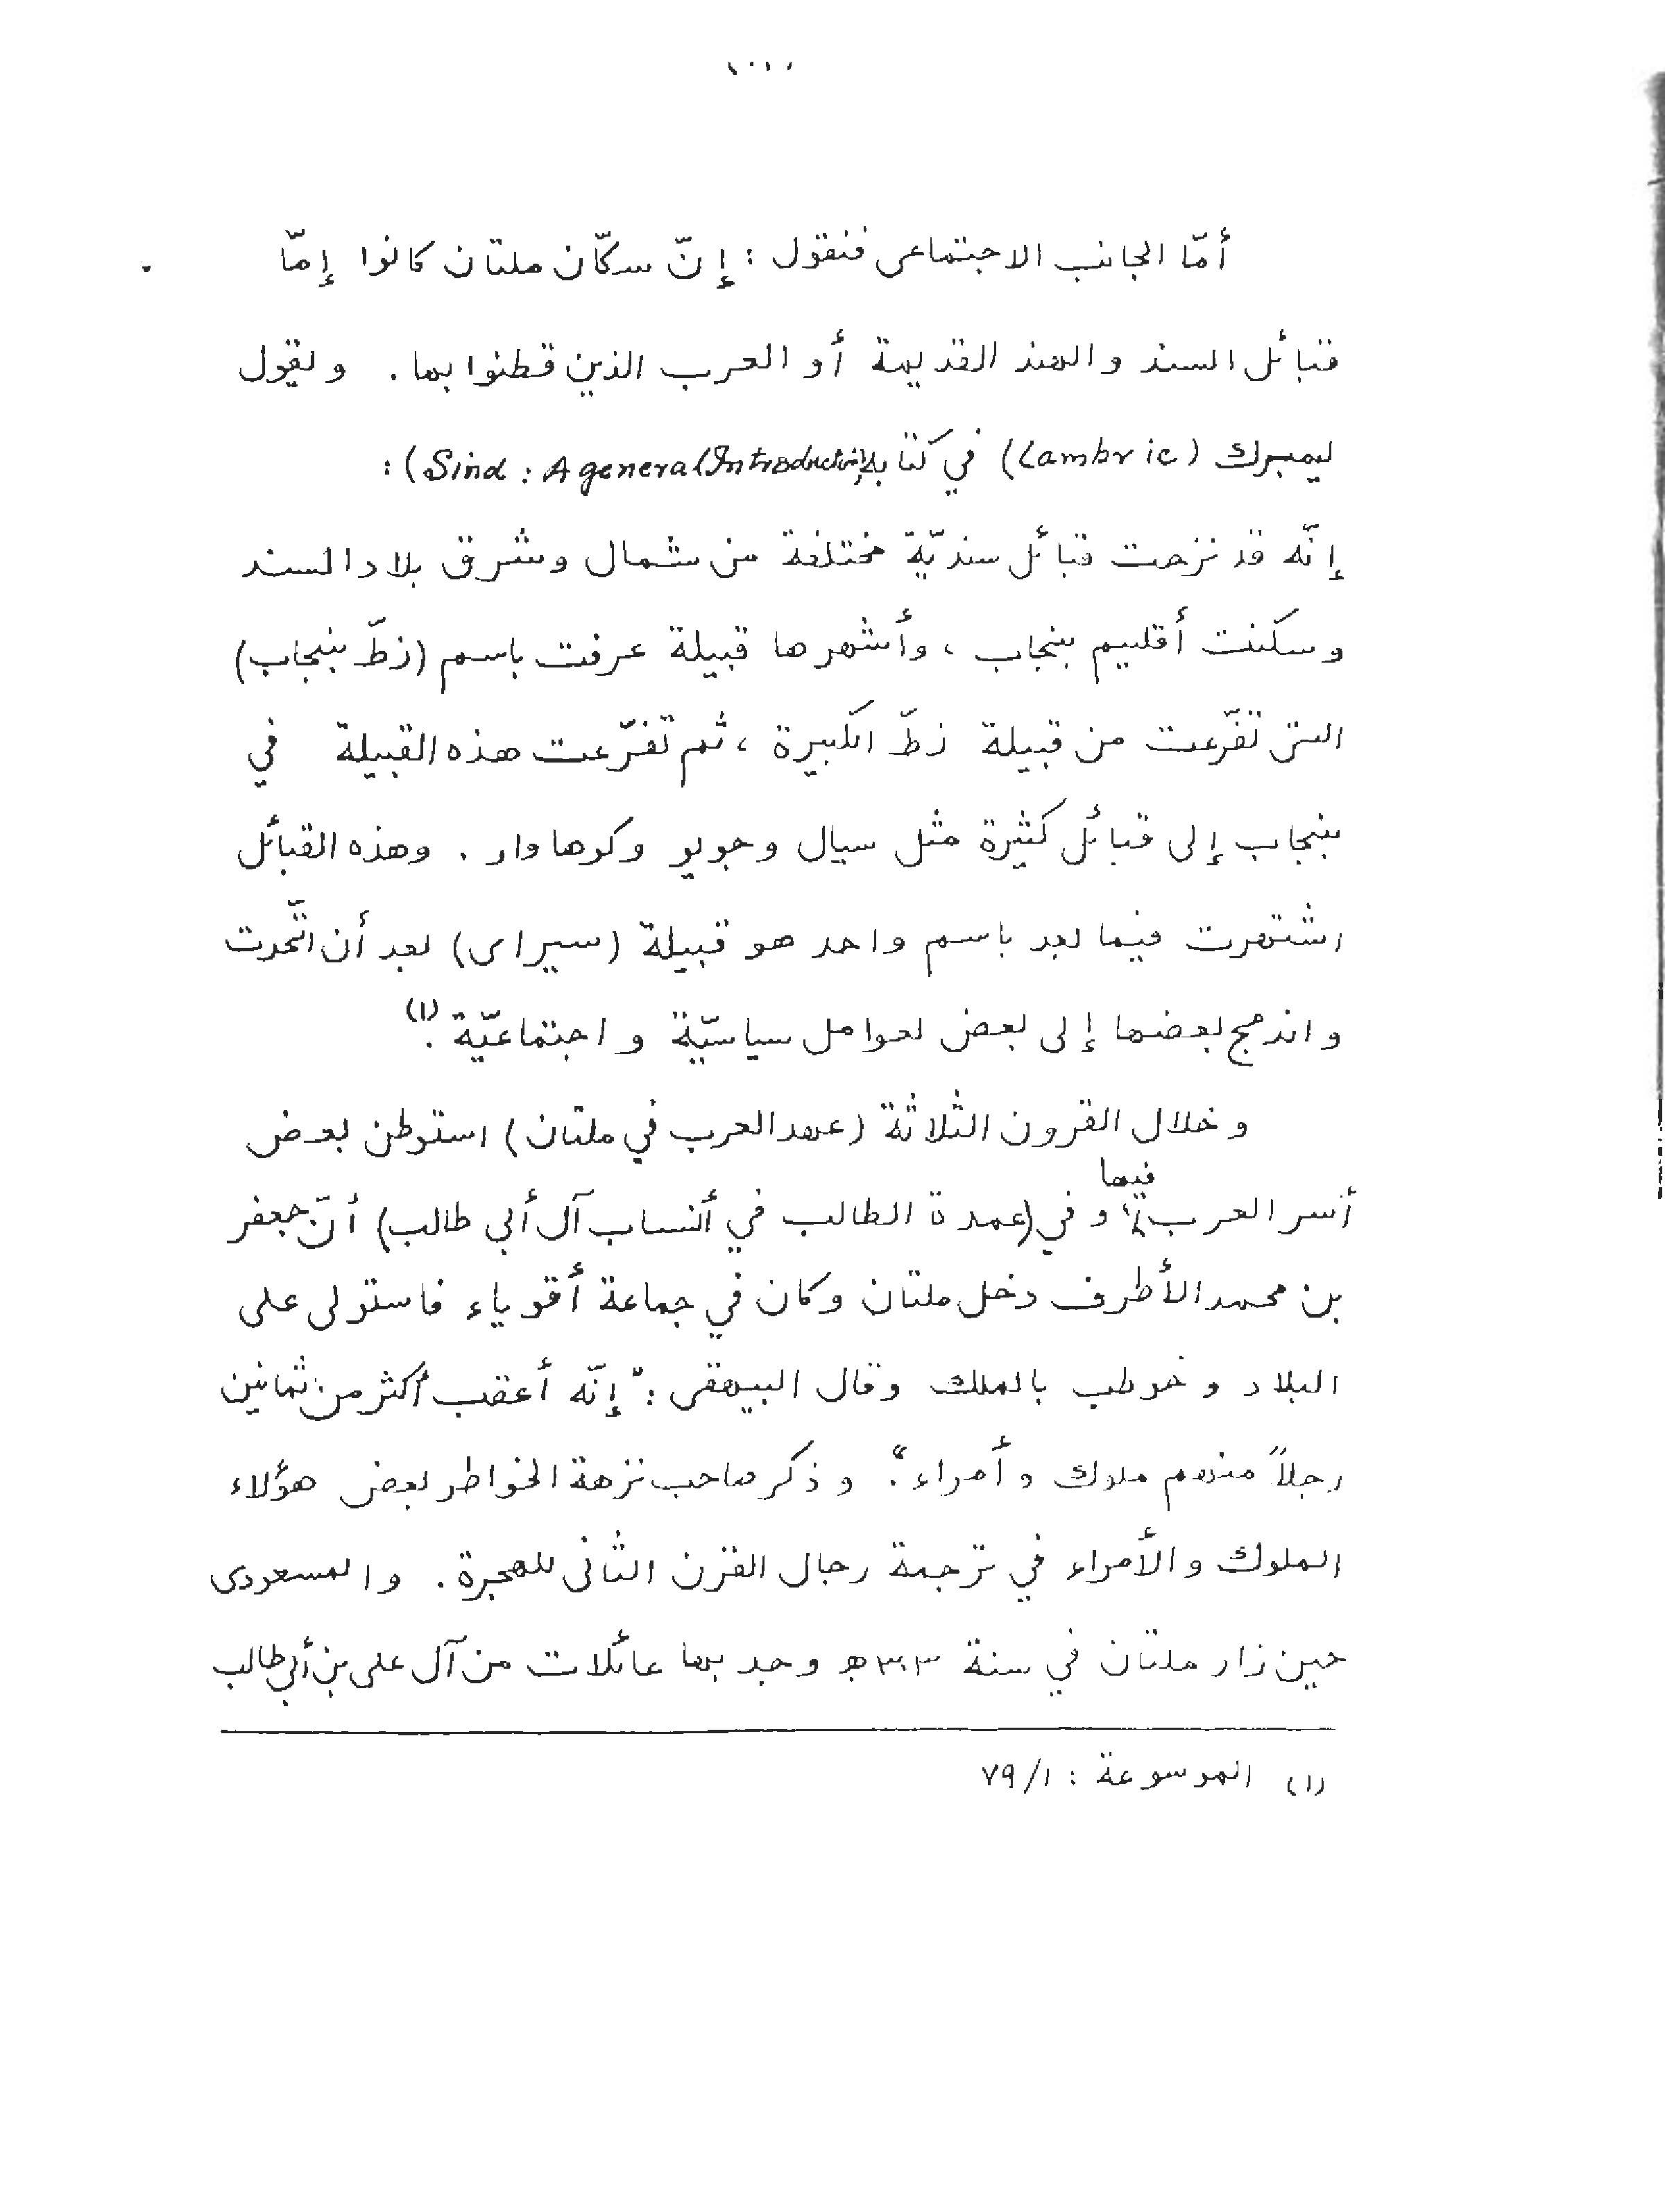 أمّا الجانب الاجتماعى فنقول : إنّ سكّان ملتان كانوا إمّا
قبائل السند والهند القديمة أو العرب الذين قطنوا بها . ويقول
ليمبرك (Lambric) في كتابه (Sind : A general Introduction) :
إنّه قد نزحت قبائل سنديّة مختلفة من شمال وشرق بلاد السند
وسكنت أقليم بنجاب ، وأشهرها قبيلة عرفت باسم (زطّ بنجاب)
التى تفّرعت من قبيلة زطّ الكبيرة ، ثم تفرّعت هذه القبيلة في
بنجاب إلى قبائل كثيرة مثل سيال وجويو وكوهاوار . وهذه القبائل
اشتهرت فيما بعد باسم واحد هو قبيلة (سيراى) بعد أن اتّحدت
واندمج بعضها إلى بعض لعوامل سياسيّة واجتماعيّة .(١)
وخلال القرون الثلاثة (عهد العرب في ملتان) استوطن بعض
أسر العرب فيها وفي (عمدة الطالب في أنساب آل أبي طالب) أنّ جعفر
بن محمد الأطرف دخل ملتان وكان في جماعة أقوياء فاستولى على
البلاد وخوطب بالملك وقال البيهقى : "إنّه أعقب أكثر من ثمانين
رجلاً منهم ملوك وأمراء" . وذكر صاحب نزهة الخواطر بعض هؤلاء
الملوك والأمراء في ترجمة رجال القرن الثانى للهجرة . والمسعودى
حين زار ملتان في سنة ٣٠٣ھ وجد بها عائلات من آل على بن أبي طالب
(١) الموسوعة : ٧٩/١